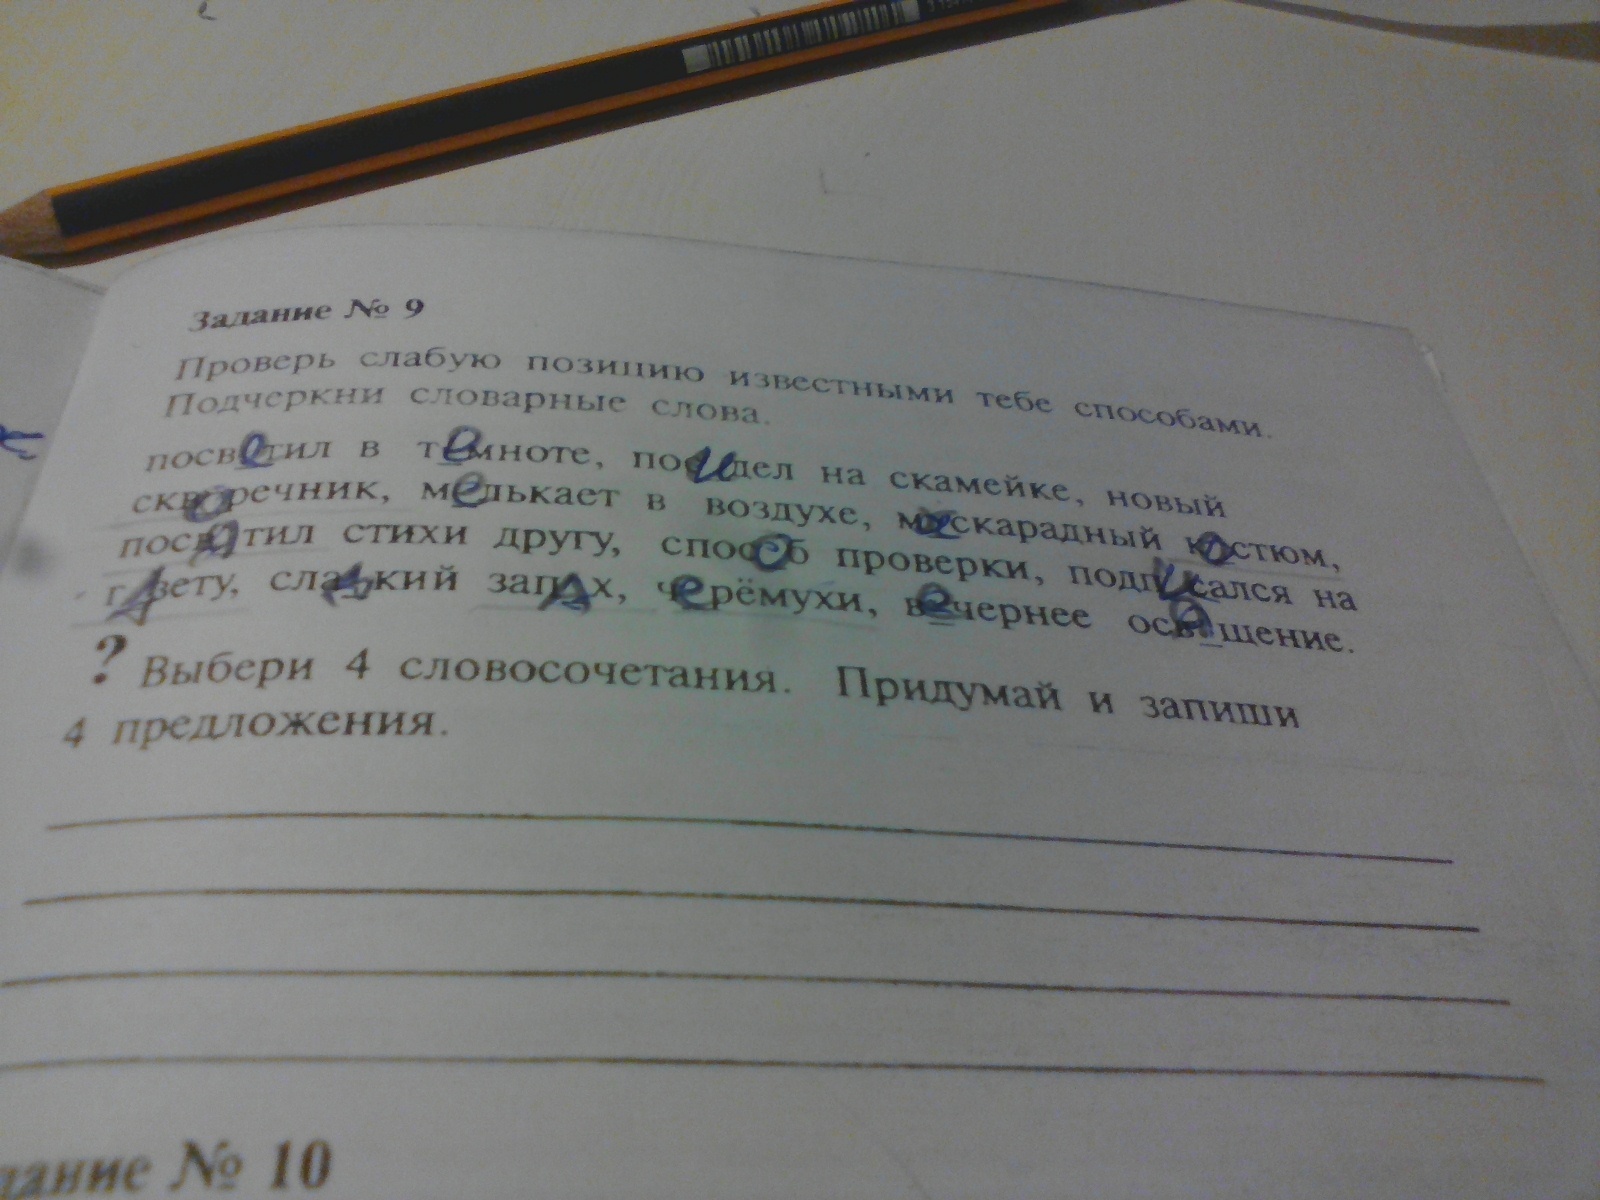 Задание № 9
Проверь слабую позицию известными тебе способами.
Подчеркни словарные слова.
посветил в темноте, посидел на скамейке, новый
скворечник, мелькает в воздухе, маскарадный костюм,
стихи другу, способ проверки, подписался на
газету, сладкий запах, черёмухи, вечернее
? Выбери 4 словосочетания. Придумай и запиши
4 предложения.
дание № 10